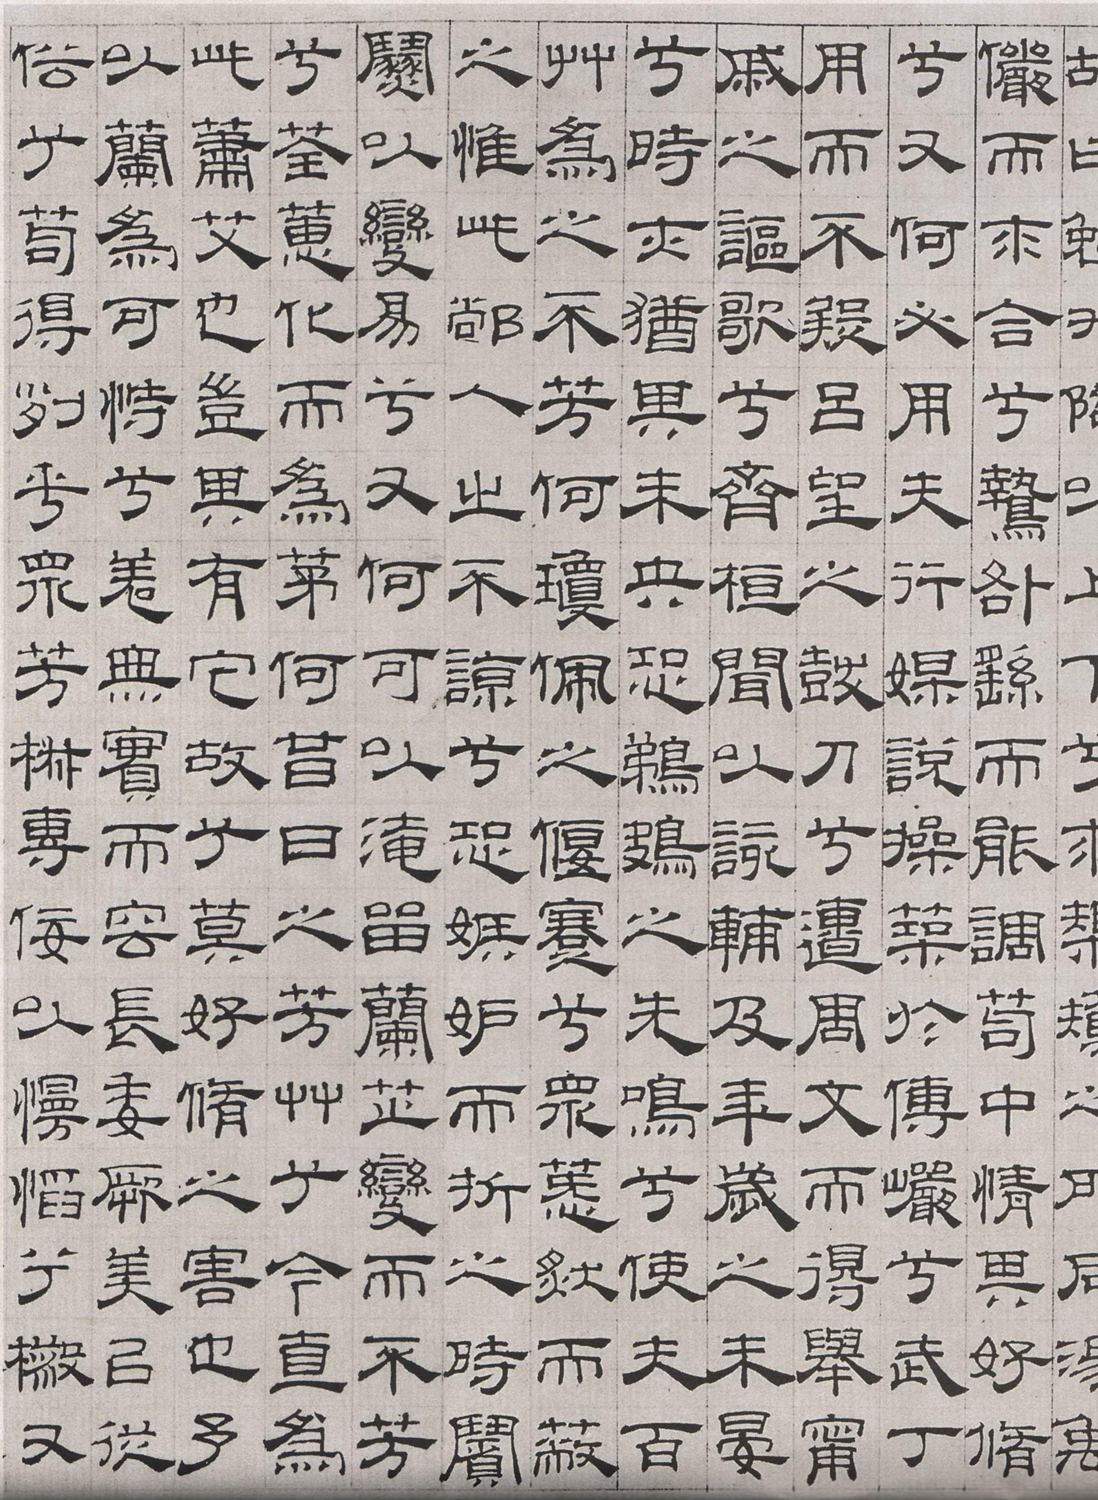 故曰勉升降以上下兮求榘矱之所同湯禹
儼而求合兮摯咎繇而能調苟中情其好脩
兮又何必用夫行媒說操築於傅巖兮武丁
用而不疑呂望之鼓刀兮遭周文而得舉甯
戚之謳歌兮齊桓聞以該輔及年歲之未晏
兮時亦猶其未央恐鵜鴂之先鳴兮使夫百
艸為之不芳何瓊佩之偃蹇兮眾薆然而蔽
之惟此䣊人之不諒兮恐嫉妒而折之時繽
紛以變易兮又何可以淹留蘭芷變而不芳
兮荃蕙化而為茅何昔日之芳艸兮今直為
此蕭艾也豈其有它故兮莫好脩之害也予
以蘭為可恃兮羌無實而容長委厥美㠯從
俗兮苟得列乎眾芳椒專佞以慢慆兮樧又